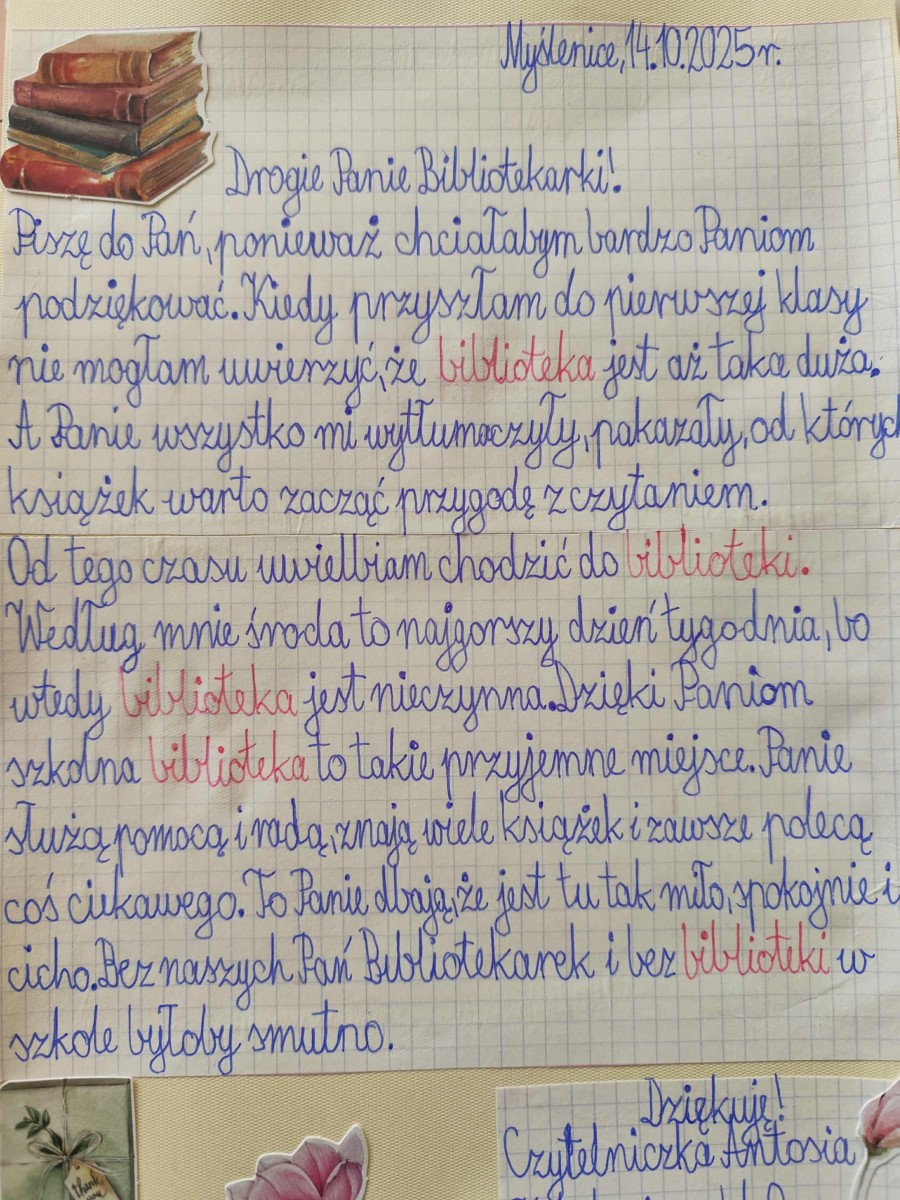 Myślenice, 14.10.2025 r.
Drogie Panie Bibliotekarki!
Piszę do Pań, ponieważ chciałabym bardzo Paniom
podziękować. Kiedy przyszłam do pierwszej klasy
nie mogłam uwierzyć, że biblioteka jest aż taka duża.
A Panie wszystko mi wytłumaczyły, pokazały, od których
książek warto zacząć przygodę z czytaniem.
Od tego czasu uwielbiam chodzić do biblioteki.
Według mnie środa to najgorszy dzień tygodnia, bo
wtedy biblioteka jest nieczynna. Dzięki Paniom
szkolna biblioteka to takie przyjemne miejsce. Panie
służą pomocą i radą, znają wiele książek i zawsze polecą
coś ciekawego. To Panie dbają, że jest tu tak miło, spokojnie i
cicho. Bez naszych Pań Bibliotekarek i bez biblioteki w
szkole byłoby smutno.
thank you
Dziękuję!
Czytelniczka Antosia